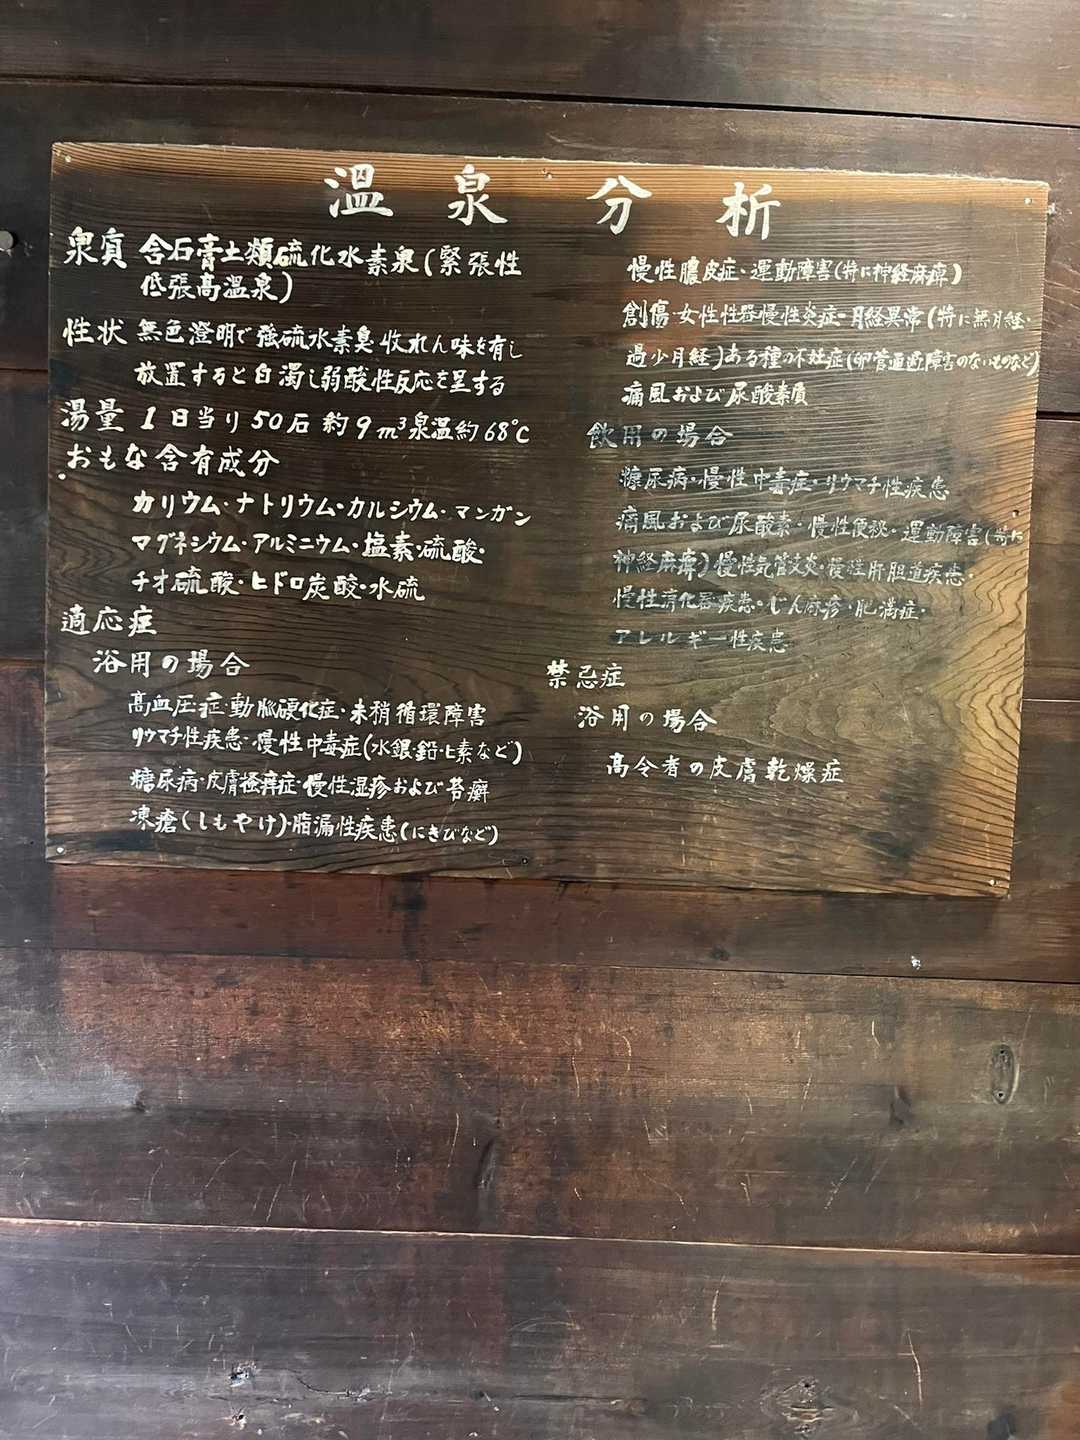 温泉分析
泉質 含石膏土類硫化水素泉(緊張性
低張高温泉)
性状 無色澄明で強硫水素臭・收れん味を有し
放置すると白濁し弱酸性反応を呈する
湯量 1日当り50石 約9m³泉温約68℃
おもな含有成分
カリウム・ナトリウム・カルシウム・マンガン
マグネシウム・アルミニウム・塩素・硫酸・
チオ硫酸・ヒドロ炭酸・水硫
適応症
浴用の場合
高血圧症・動脈硬化症・末梢循環障害
リウマチ性疾患・慢性中毒症(水銀・鉛・ヒ素など)
糖尿病・皮膚掻痒症・慢性湿疹および苔癬
凍瘡(しもやけ)・脂漏性疾患(にきびなど)
慢性膿皮症・運動障害(特に神経麻痺)
創傷・女性性器慢性炎症・月経異常(特に無月経・
過少月経)ある種の不妊症(卵管通過障害のないものなど)
痛風および尿酸素質
飲用の場合
糖尿病・慢性中毒症・リウマチ性疾患
痛風および尿酸素・慢性便秘・運動障害(特に
神経麻痺)慢性気管支炎・慢性肝胆道疾患・
慢性消化器疾患・じん麻疹・肥満症・
アレルギー性疾患
禁忌症
浴用の場合
高令者の皮膚乾燥症